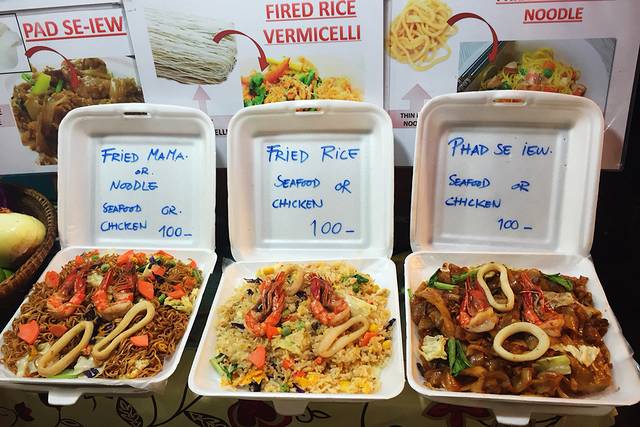 PAD SE-IEW
FIRED RICE
VERMICELLI
NOODLE
THIN
FRIED MAMA.
OR.
NOODLE
SEAFOOD OR.
CHICKEN 100-
FRIED RICE
SEAFOOD OR
CHICKEN
100-
PHAD SE IEW.
SEAFOOD OR
CHICKEN
100-